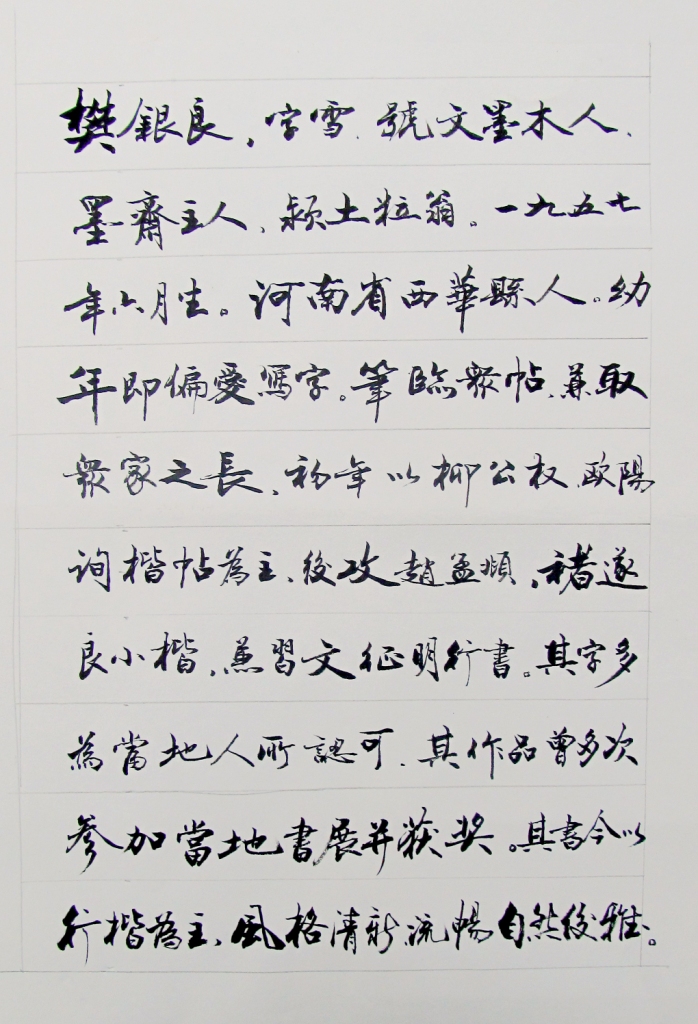 樊銀良，字雪、號文墨木人、
墨齋主人、潁土粒翁。一九五七
年六月生。河南省西華縣人。幼
年即偏愛寫字。筆臨衆帖、兼取
衆家之長、初年以柳公权、欧陽
詢楷帖為主、後攻趙孟頫、褚遂
良小楷，兼習文征明行書。其字多
為當地人所認可、其作品曾多次
参加當地書展并获奖。其書今以
行楷為主、風格清新、流暢自然俊雅。